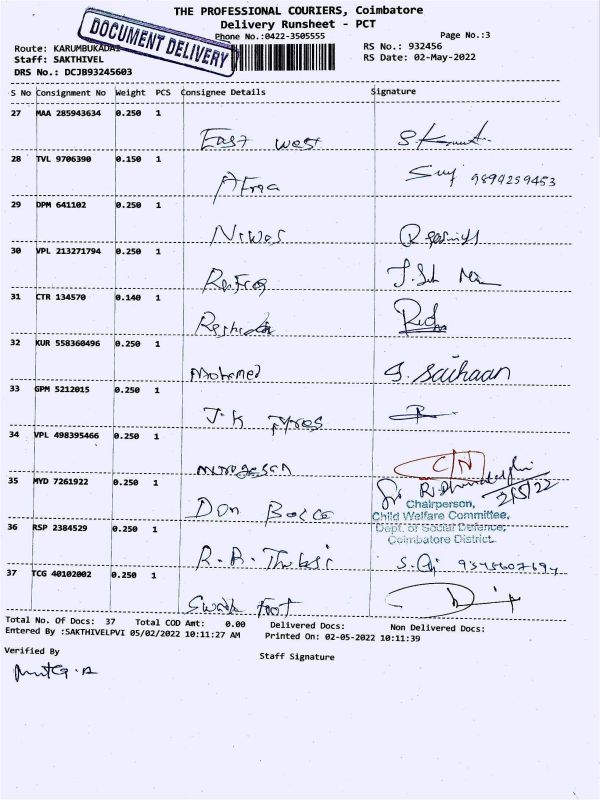 THE PROFESSIONAL COURIERS, Coimbatore
Delivery Runsheet - PCT
DOCUMENT DELIVERY
Phone No.:0422-3505555
Page No.:3
Route: KARUMBUKADAI
RS No.: 932456
Staff: SAKTHIVEL
RS Date: 02-May-2022
DRS No.: DCJB93245603
S No Consignment No Weight PCS Consignee Details Signature
27 MAA 285943634 0.250 1
East west
28 TVL 9706390 0.150 1
Afraa 9894259453
29 DPM 641102 0.250 1
Niwas
30 VPL 213271794 0.250 1
31 CTR 134570 0.140 1
Reshida
32 KUR 558360496 0.250 1
Mohamed S. Saihaan
33 GPM 5212015 0.250 1
J.K Tyres
34 VPL 498395466 0.250 1
Murugesan C/N
35 MYD 7261922 0.250 1
2/5/22
Chairperson,
Don Bosco Child Welfare Committee,
36 RSP 2384529 0.250 1
Dept. of Social Defence,
Coimbatore District.
R.A. Thulasi
37 TCG 40102002 0.250 1
Swath Foot
Total No. Of Docs: 37 Total COD Amt: 0.00 Delivered Docs: Non Delivered Docs:
Entered By :SAKTHIVELPVI 05/02/2022 10:11:27 AM Printed On: 02-05-2022 10:11:39
Verified By
Staff Signature